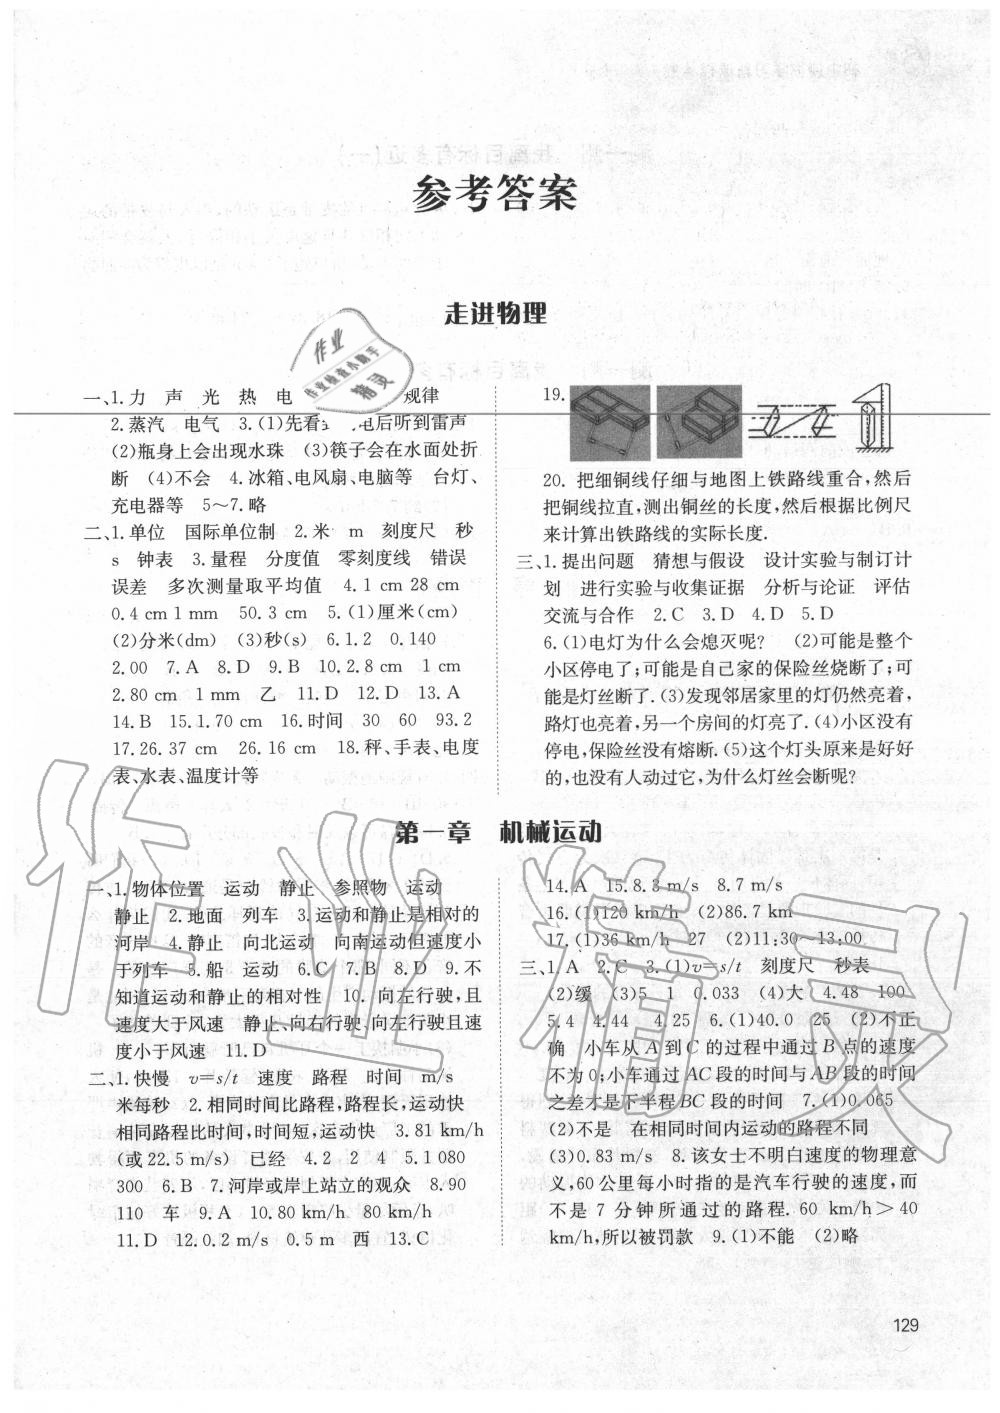 参考答案
走进物理
一、1.力 声 光 热 电 规律
2.蒸汽 电气 3.(1)先看 电后听到雷声
(2)瓶身上会出现水珠 (3)筷子会在水面处折
断 (4)不会 4.冰箱、电风扇、电脑等 台灯、
充电器等 5~7.略
二、1.单位 国际单位制 2.米 m 刻度尺 秒
s 钟表 3.量程 分度值 零刻度线 错误
误差 多次测量取平均值 4.1 cm 28 cm
0.4 cm 1 mm 50.3 cm 5.(1)厘米(cm)
(2)分米(dm) (3)秒(s) 6.1.2 0.140
2.00 7.A 8.D 9.B 10.2.8 cm 1 cm
2.80 cm 1 mm 乙 11.D 12.D 13.A
14.B 15.1.70 cm 16.时间 30 60 93.2
17.26.37 cm 26.16 cm 18.秤、手表、电度
表、水表、温度计等
19.
20.把细铜线仔细与地图上铁路线重合,然后
把铜线拉直,测出铜丝的长度,然后根据比例尺
来计算出铁路线的实际长度.
三、1.提出问题 猜想与假设 设计实验与制订计
划 进行实验与收集证据 分析与论证 评估
交流与合作 2.C 3.D 4.D 5.D
6.(1)电灯为什么会熄灭呢? (2)可能是整个
小区停电了;可能是自己家的保险丝烧断了;可
能是灯丝断了.(3)发现邻居家里的灯仍然亮着,
路灯也亮着,另一个房间的灯亮了.(4)小区没有
停电,保险丝没有熔断.(5)这个灯头原来是好好
的,也没有人动过它,为什么灯丝会断呢?
第一章 机械运动
一、1.物体位置 运动 静止 参照物 运动
静止 2.地面 列车 3.运动和静止是相对的
河岸 4.静止 向北运动 向南运动但速度小
于列车 5.船 运动 6.C 7.B 8.D 9.不
知道运动和静止的相对性 10.向左行驶,且
速度大于风速 静止、向右行驶、向左行驶且速
度小于风速 11.D
二、1.快慢 v=s/t 速度 路程 时间 m/s
米每秒 2.相同时间比路程,路程长,运动快
相同路程比时间,时间短,运动快 3.81 km/h
(或22.5 m/s) 已经 4.2 2 4 5.1 080
300 6.B 7.河岸或岸上站立的观众 8.90
110 车 9.A 10.80 km/h 80 km/h
11.D 12.0.2 m/s 0.5 m 西 13.C
14.A 15.8.3 m/s 8.7 m/s
16.(1)120 km/h (2)86.7 km
17.(1)36 km/h 27 (2)11:30~13:00
三、1.A 2.C 3.(1)v=s/t 刻度尺 秒表
(2)缓 (3)5 1 0.033 (4)大 4.48 100
5.4 4.44 4.25 6.(1)40.0 25 (2)不正
确 小车从A到C的过程中通过B点的速度
不为0;小车通过AC段的时间与AB段的时间
之差才是下半程BC段的时间 7.(1)0.065
(2)不是 在相同时间内运动的路程不同
(3)0.83 m/s 8.该女士不明白速度的物理意
义,60公里每小时指的是汽车行驶的速度,而
不是7分钟所通过的路程.60 km/h>40
km/h,所以被罚款 9.(1)不能 (2)略
129
作业
作业检查小助手
精灵
作业精灵